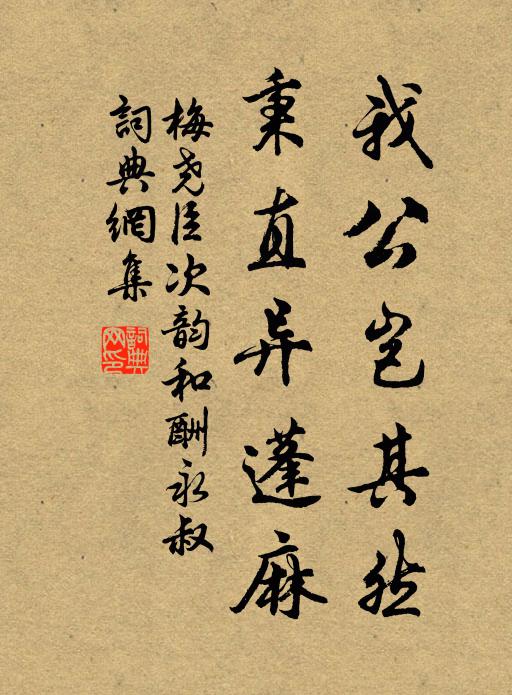 我公岂其然
秉直异蓬麻
梅尧臣次韵和酬永叔
詞典網集
詞典网印